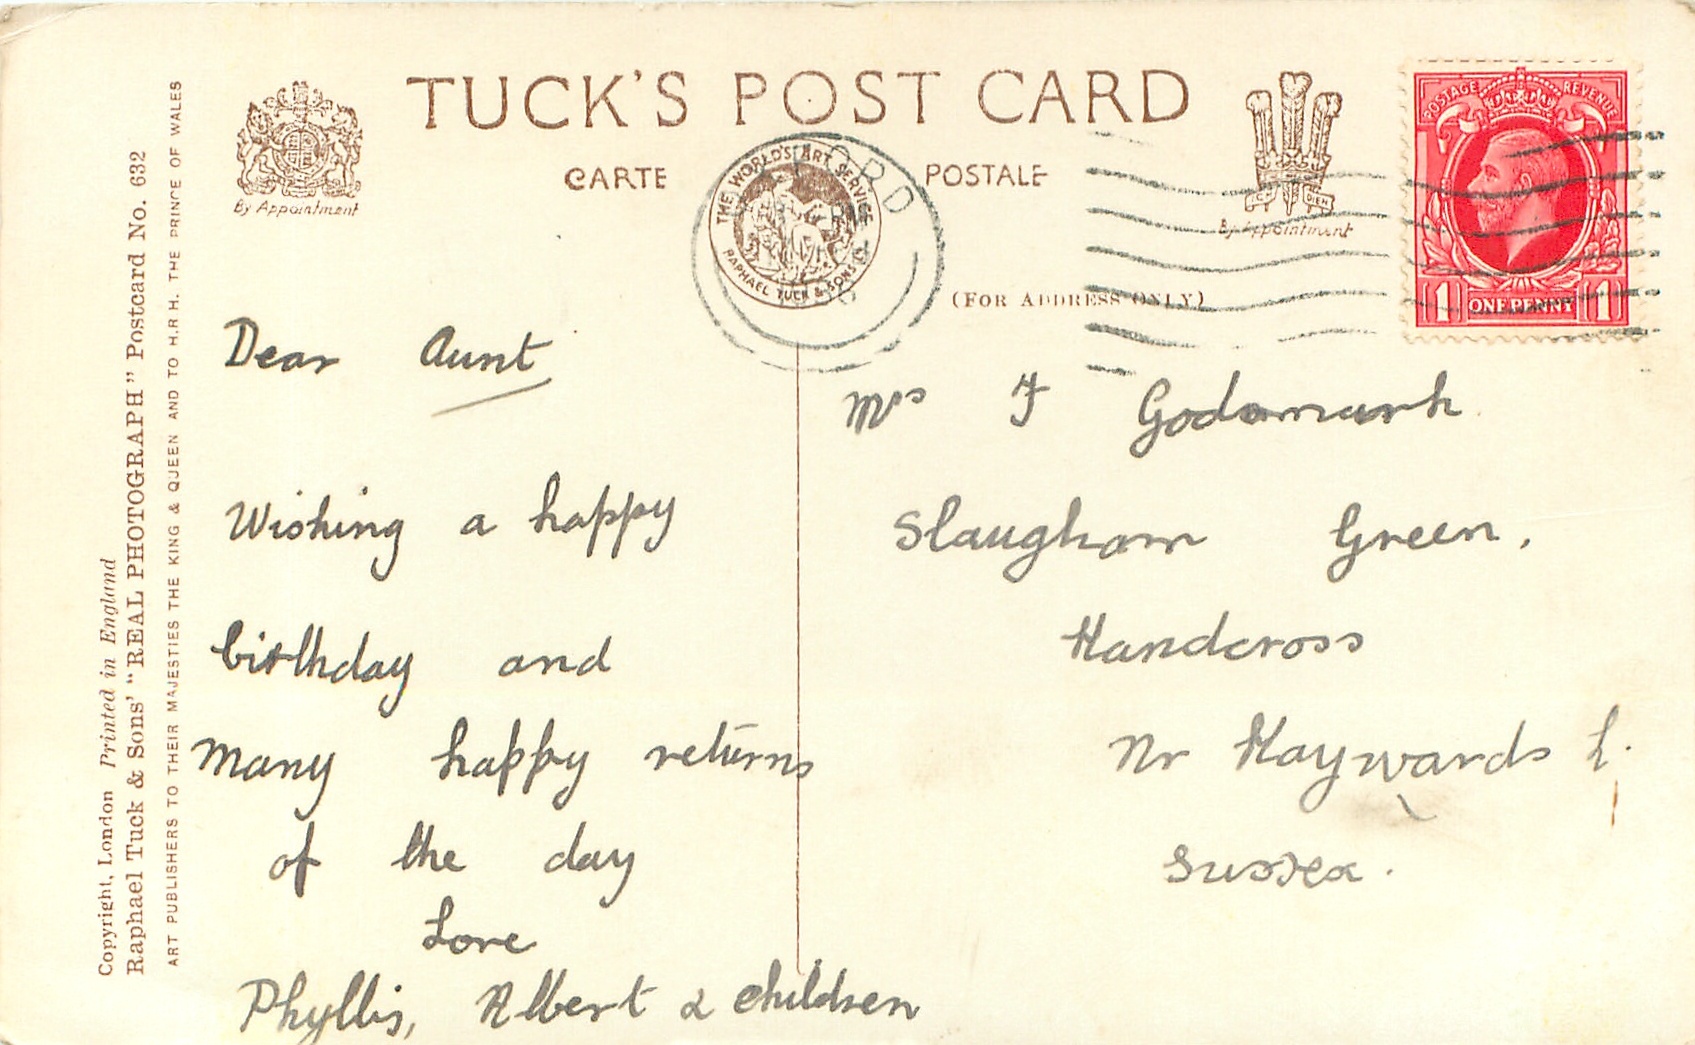 TUCK'S POST CARD
CARTE POSTALE
By Appointment
THE WORLD'S ART SERVICE
RAPHAEL TUCK & SONS
By Appointment
DIEN
POSTAGE REVENUE
1 ONE PENNY 1
(FOR ADDRESS ONLY)
Copyright, London Printed in England
Raphael Tuck & Sons' "REAL PHOTOGRAPH" Postcard No. 632
ART PUBLISHERS TO THEIR MAJESTIES THE KING & QUEEN AND TO H.R H. THE PRINCE OF WALES
Dear Aunt
Wishing a happy
birthday and
many happy returns
of the day
Love
Phyllis, Albert & children
Mrs F Godsmark
Slaugham Green.
Handcross
Nr Haywards h.
Sussex.